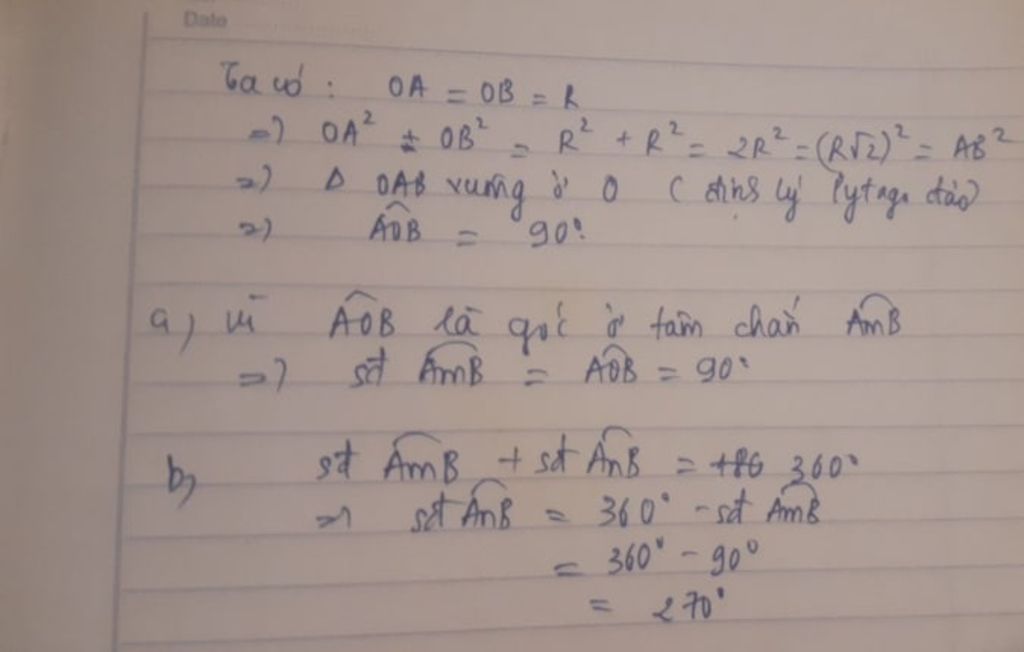 Date
Ta có : OA = OB = R
=> OA² + OB² = R² + R² = 2R² = (R√2)² = AB²
=> Δ OAB vuông ở O ( định lý Pytago đảo)
=> AOB = 90°
a, Vì AOB là góc ở tâm chắn AmB
=> sđ AmB = AOB = 90°
b, sđ AmB + sđ AnB = 360°
=> sđ AnB = 360° - sđ AmB
= 360° - 90°
= 270°